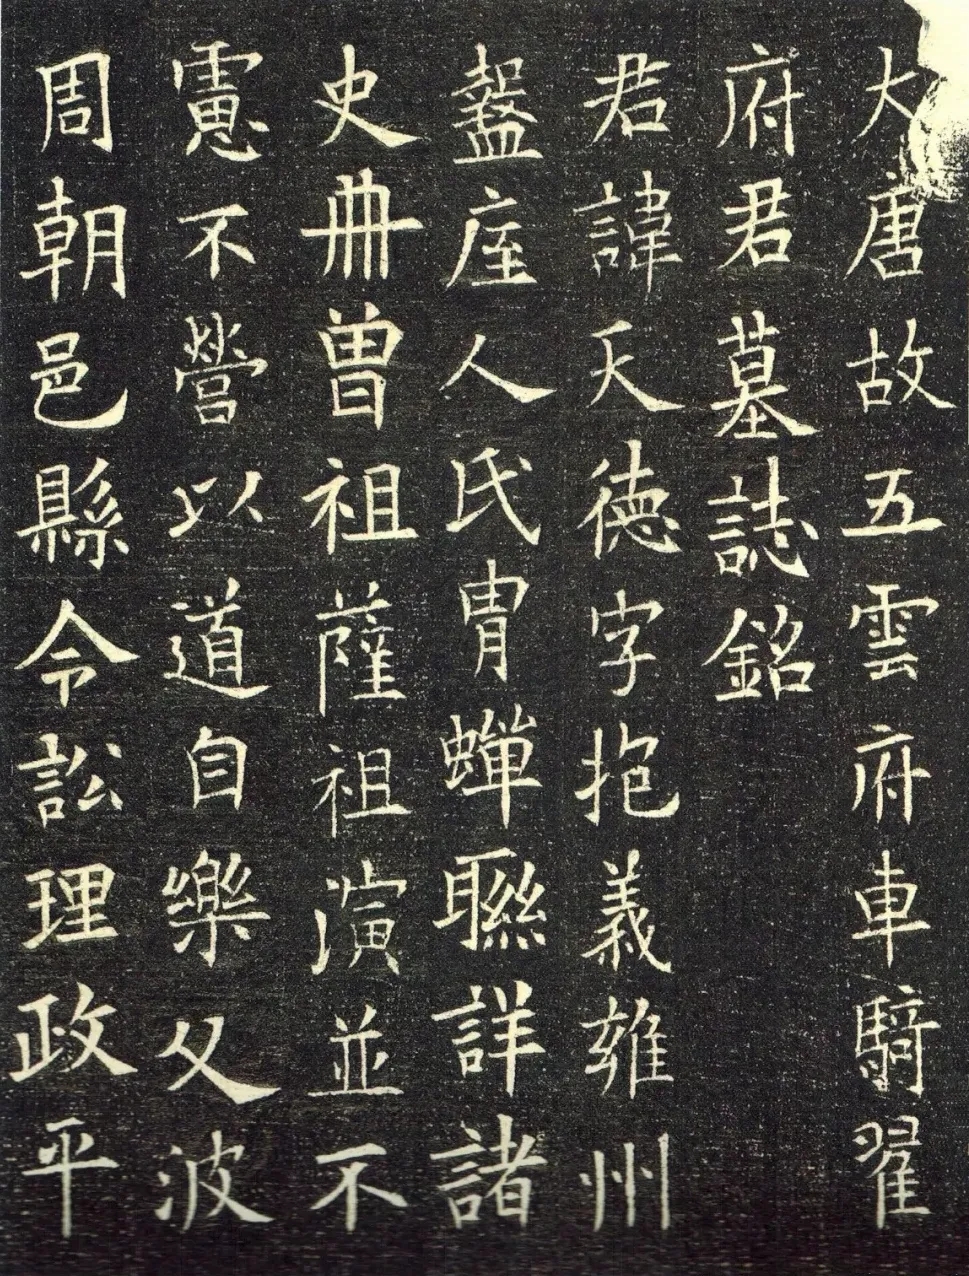 大唐故五雲府車騎翟
府君墓誌銘
君諱天德字抱義雍州
盩厔人氏胄蟬聯詳諸
史冊曾祖薩祖演並不
憲不營以道自樂父波
周朝邑縣令訟理政平